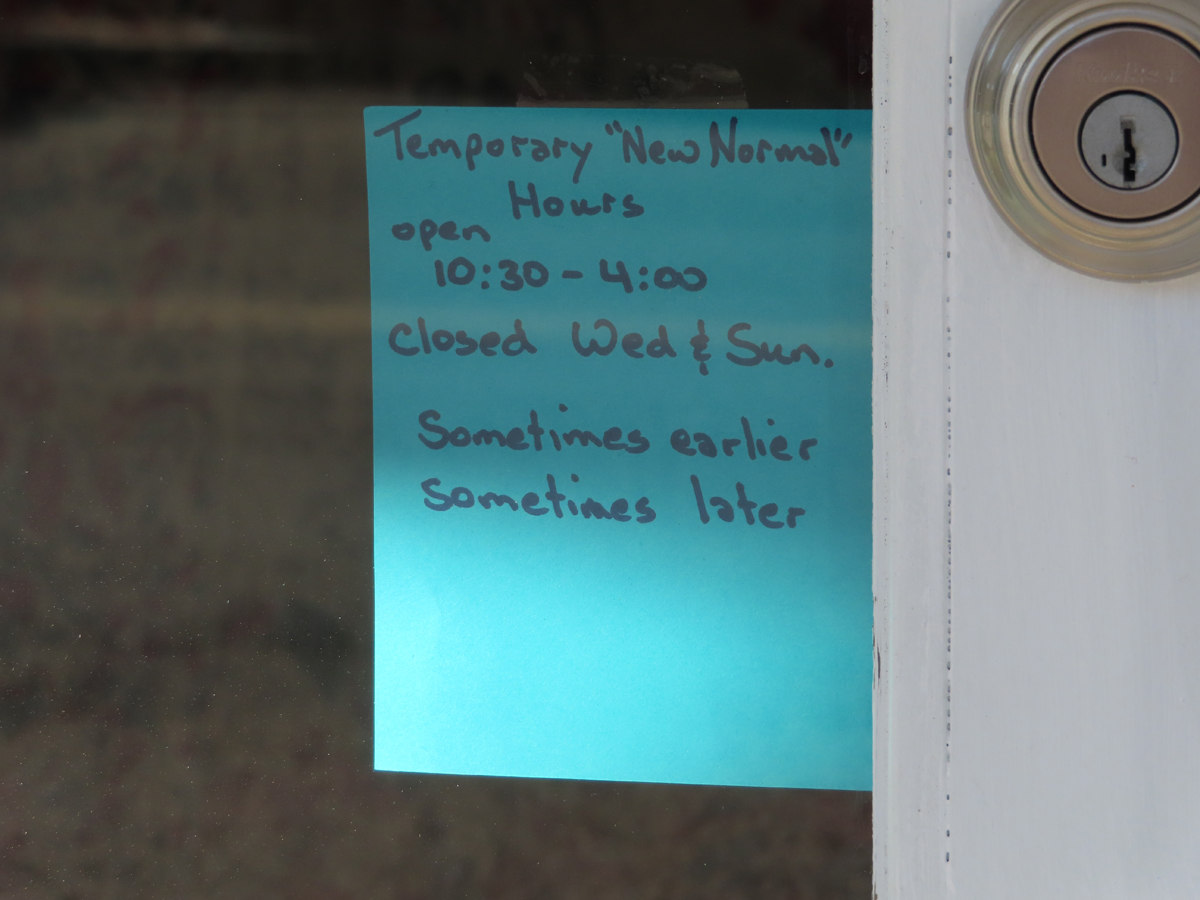 Temporary "New Normal"
Hours
open
10:30 - 4:00
Closed Wed & Sun.
Sometimes earlier
sometimes later